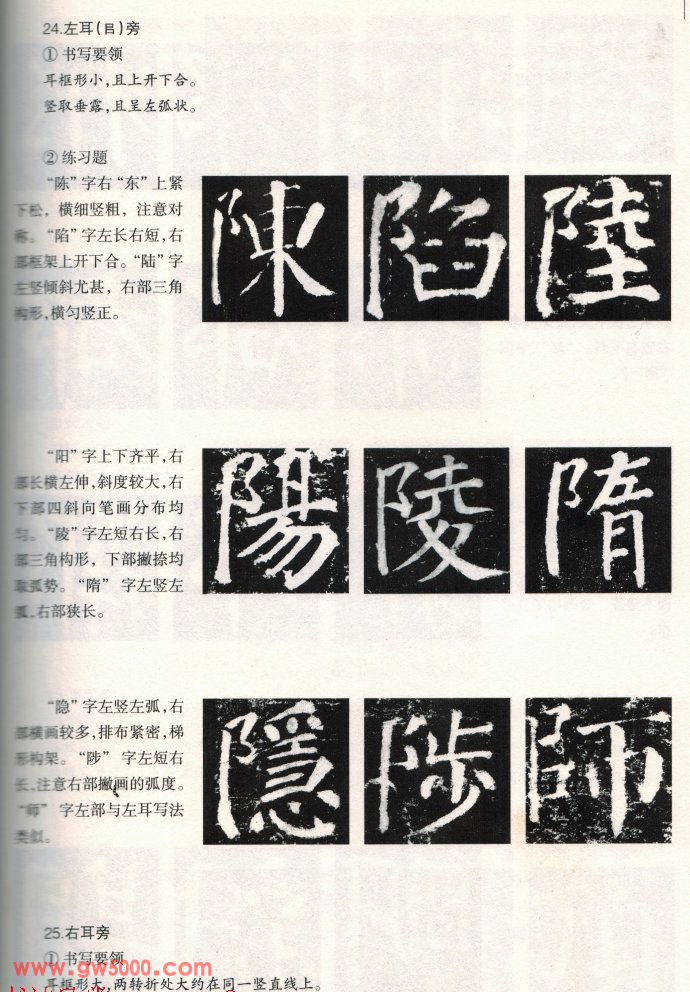 24.左耳(目)旁
① 书写要领
耳框形小,且上开下合。
竖取垂露,且呈左弧状。
② 练习题
“陈”字右“东”上紧
下松,横细竖粗,注意对
称。“陷”字左长右短,右
部框架上开下合。“陆”字
左竖倾斜尤甚,右部三角
构形,横匀竖正。
陳 陷 陸
“阳”字上下齐平,右
部长横左伸,斜度较大,右
下部四斜向笔画分布均
匀。“陵”字左短右长,右
部三角构形,下部撇捺均
取弧势。“隋”字左竖左
弧,右部狭长。
陽 陵 隋
“隐”字左竖左弧,右
部横画较多,排布紧密,梯
形构架。“陟”字左短右
长,注意右部撇画的弧度。
“师”字左部与左耳写法
类似。
隱 陟 師
25.右耳旁
① 书写要领
www.gw5000.com
耳框形大,两转折处大约在同一竖直线上。